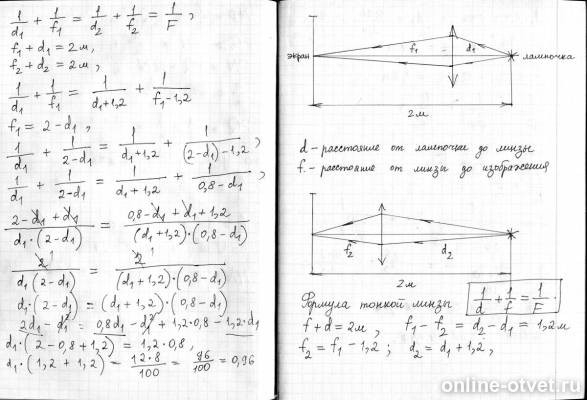 1/d₁ + 1/f₁ = 1/d₂ + 1/f₂ = 1/F,
f₁ + d₁ = 2м,
f₂ + d₂ = 2м,
1/d₁ + 1/f₁ = 1/(d₁+1,2) + 1/(f₁-1,2)
f₁ = 2 - d₁,
1/d₁ + 1/(2-d₁) = 1/(d₁+1,2) + 1/((2-d₁)-1,2),
1/d₁ + 1/(2-d₁) = 1/(d₁+1,2) + 1/(0,8-d₁),
(2-d₁+d₁)/(d₁·(2-d₁)) = (0,8-d₁+d₁+1,2)/((d₁+1,2)·(0,8-d₁))
2¹/(d₁(2-d₁)) = 2¹/((d₁+1,2)·(0,8-d₁))
d₁·(2-d₁) = (d₁+1,2)·(0,8-d₁)
2d₁ - d₁² = 0,8d₁ - d₁² + 1,2·0,8 - 1,2·d₁
d₁·(2-0,8+1,2) = 1,2·0,8,
d₁·(1,2+1,2) = 12·8/100 = 96/100 = 0,96
экран f₁ d₁ лампочка
2м
d - расстояние от лампочки до линзы
f - расстояние от линзы до изображения
f₂ d₂
2м
Формула тонкой линзы 1/d + 1/f = 1/F.
f + d = 2м, f₁ - f₂ = d₂ - d₁ = 1,2м
f₂ = f₁ - 1,2; d₂ = d₁ + 1,2,
online-otvet.ru